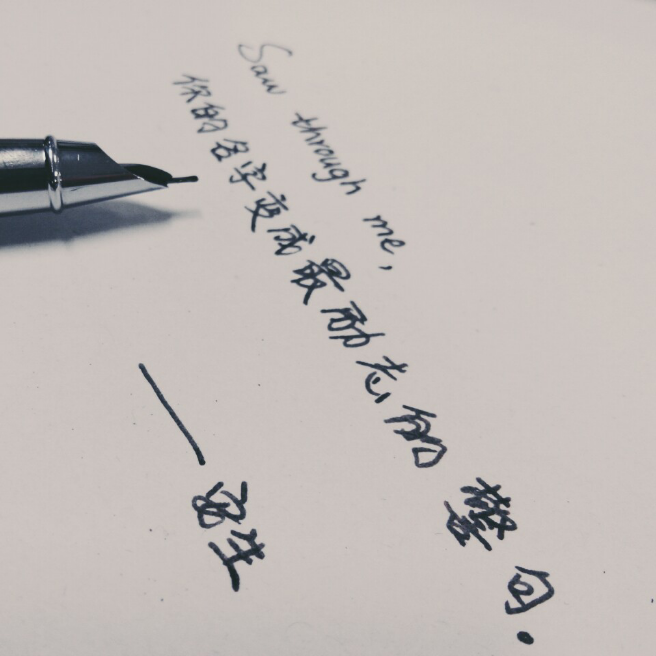 Saw through me,
你的名字变成最励志的警句.
——宓生